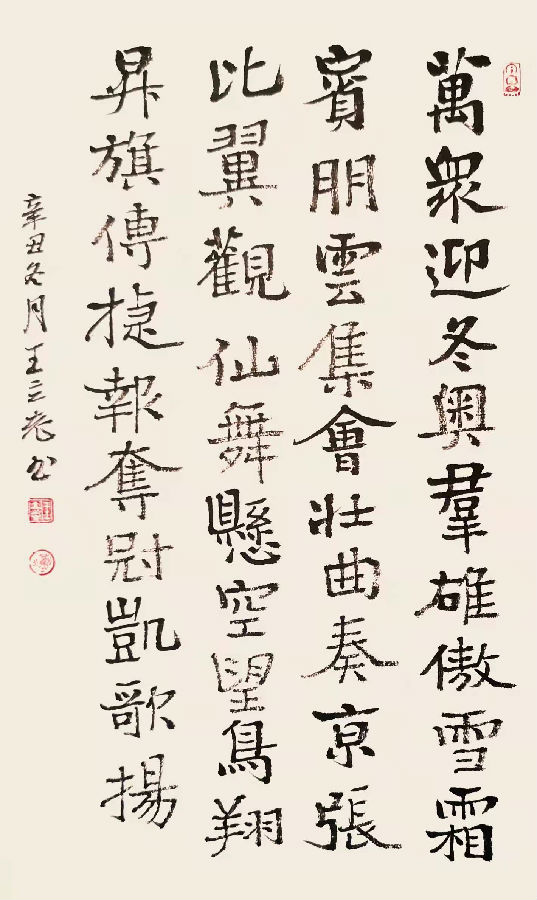 萬衆迎冬奧羣雄傲雪霜
賓朋雲集會壯曲奏京張
比翼觀仙舞懸空望鳥翔
昇旗傳捷報奪冠凱歌揚
辛丑冬月王三